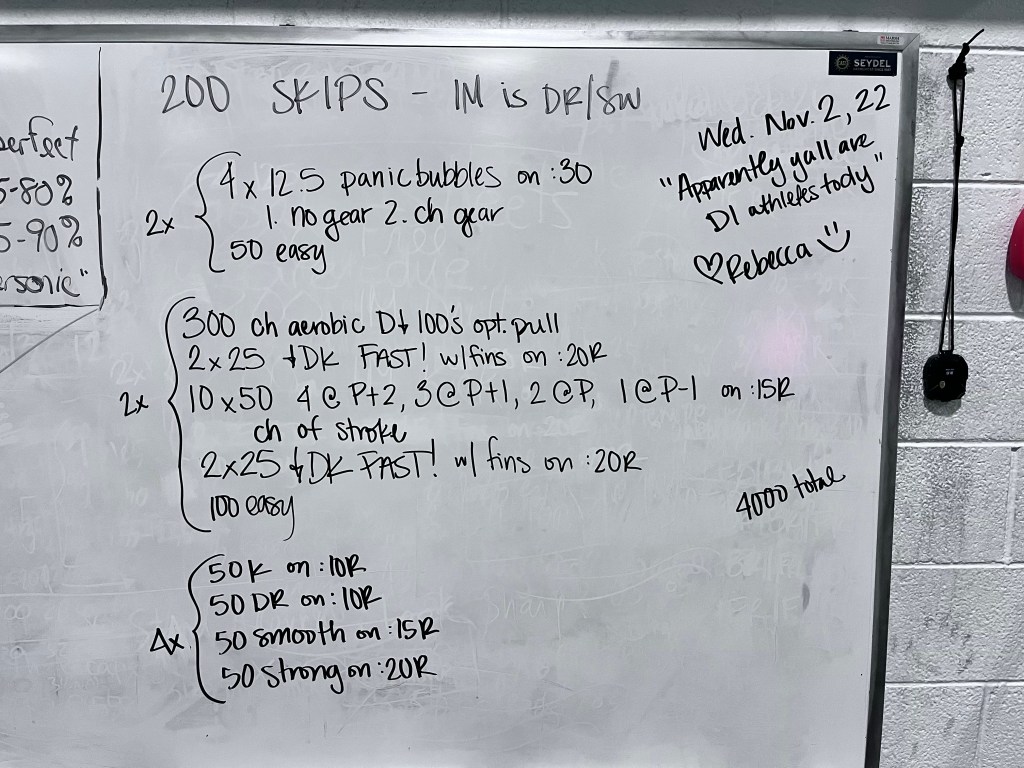 200 SKIPS - IM is DR/SW
SEYDEL
Wed. Nov. 2, 22
"Apparently yall are
D1 athletes tody"
♡Rebecca
2x
4 x 12.5 panic bubbles on :30
1. no gear 2. ch gear
50 easy
2x
300 ch aerobic D↓ 100's opt. pull
2 x 25 ↓DK FAST! w/fins on :20R
10 x 50 4 @ P+2, 3 @ P+1, 2 @P, 1 @ P-1 on :15R
ch of stroke
2x25 ↓DK FAST! w/ fins on :20R
100 easy
4000 total
4x
50 K on :10R
50 DR on :10R
50 smooth on :15R
50 strong on :20R
erfect
-80%
-90%
rsonic"